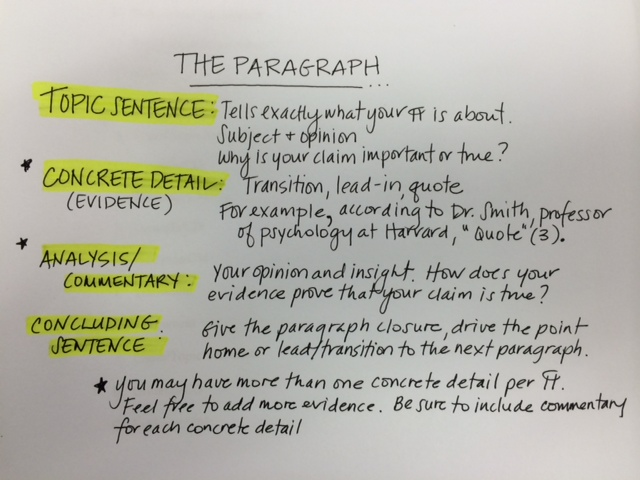 THE PARAGRAPH...
TOPIC SENTENCE: Tells exactly what your ¶ is about.
Subject + opinion
Why is your claim important or true?
* CONCRETE DETAIL: Transition, lead-in, quote
(EVIDENCE) For example, according to Dr. Smith, professor
of psychology at Harvard, "Quote" (3).
* ANALYSIS/
COMMENTARY: Your opinion and insight. How does your
evidence prove that your claim is true?
CONCLUDING Give the paragraph closure, drive the point
SENTENCE home or lead/transition to the next paragraph.
* you may have more than one concrete detail per ¶.
Feel free to add more evidence. Be sure to include commentary
for each concrete detail